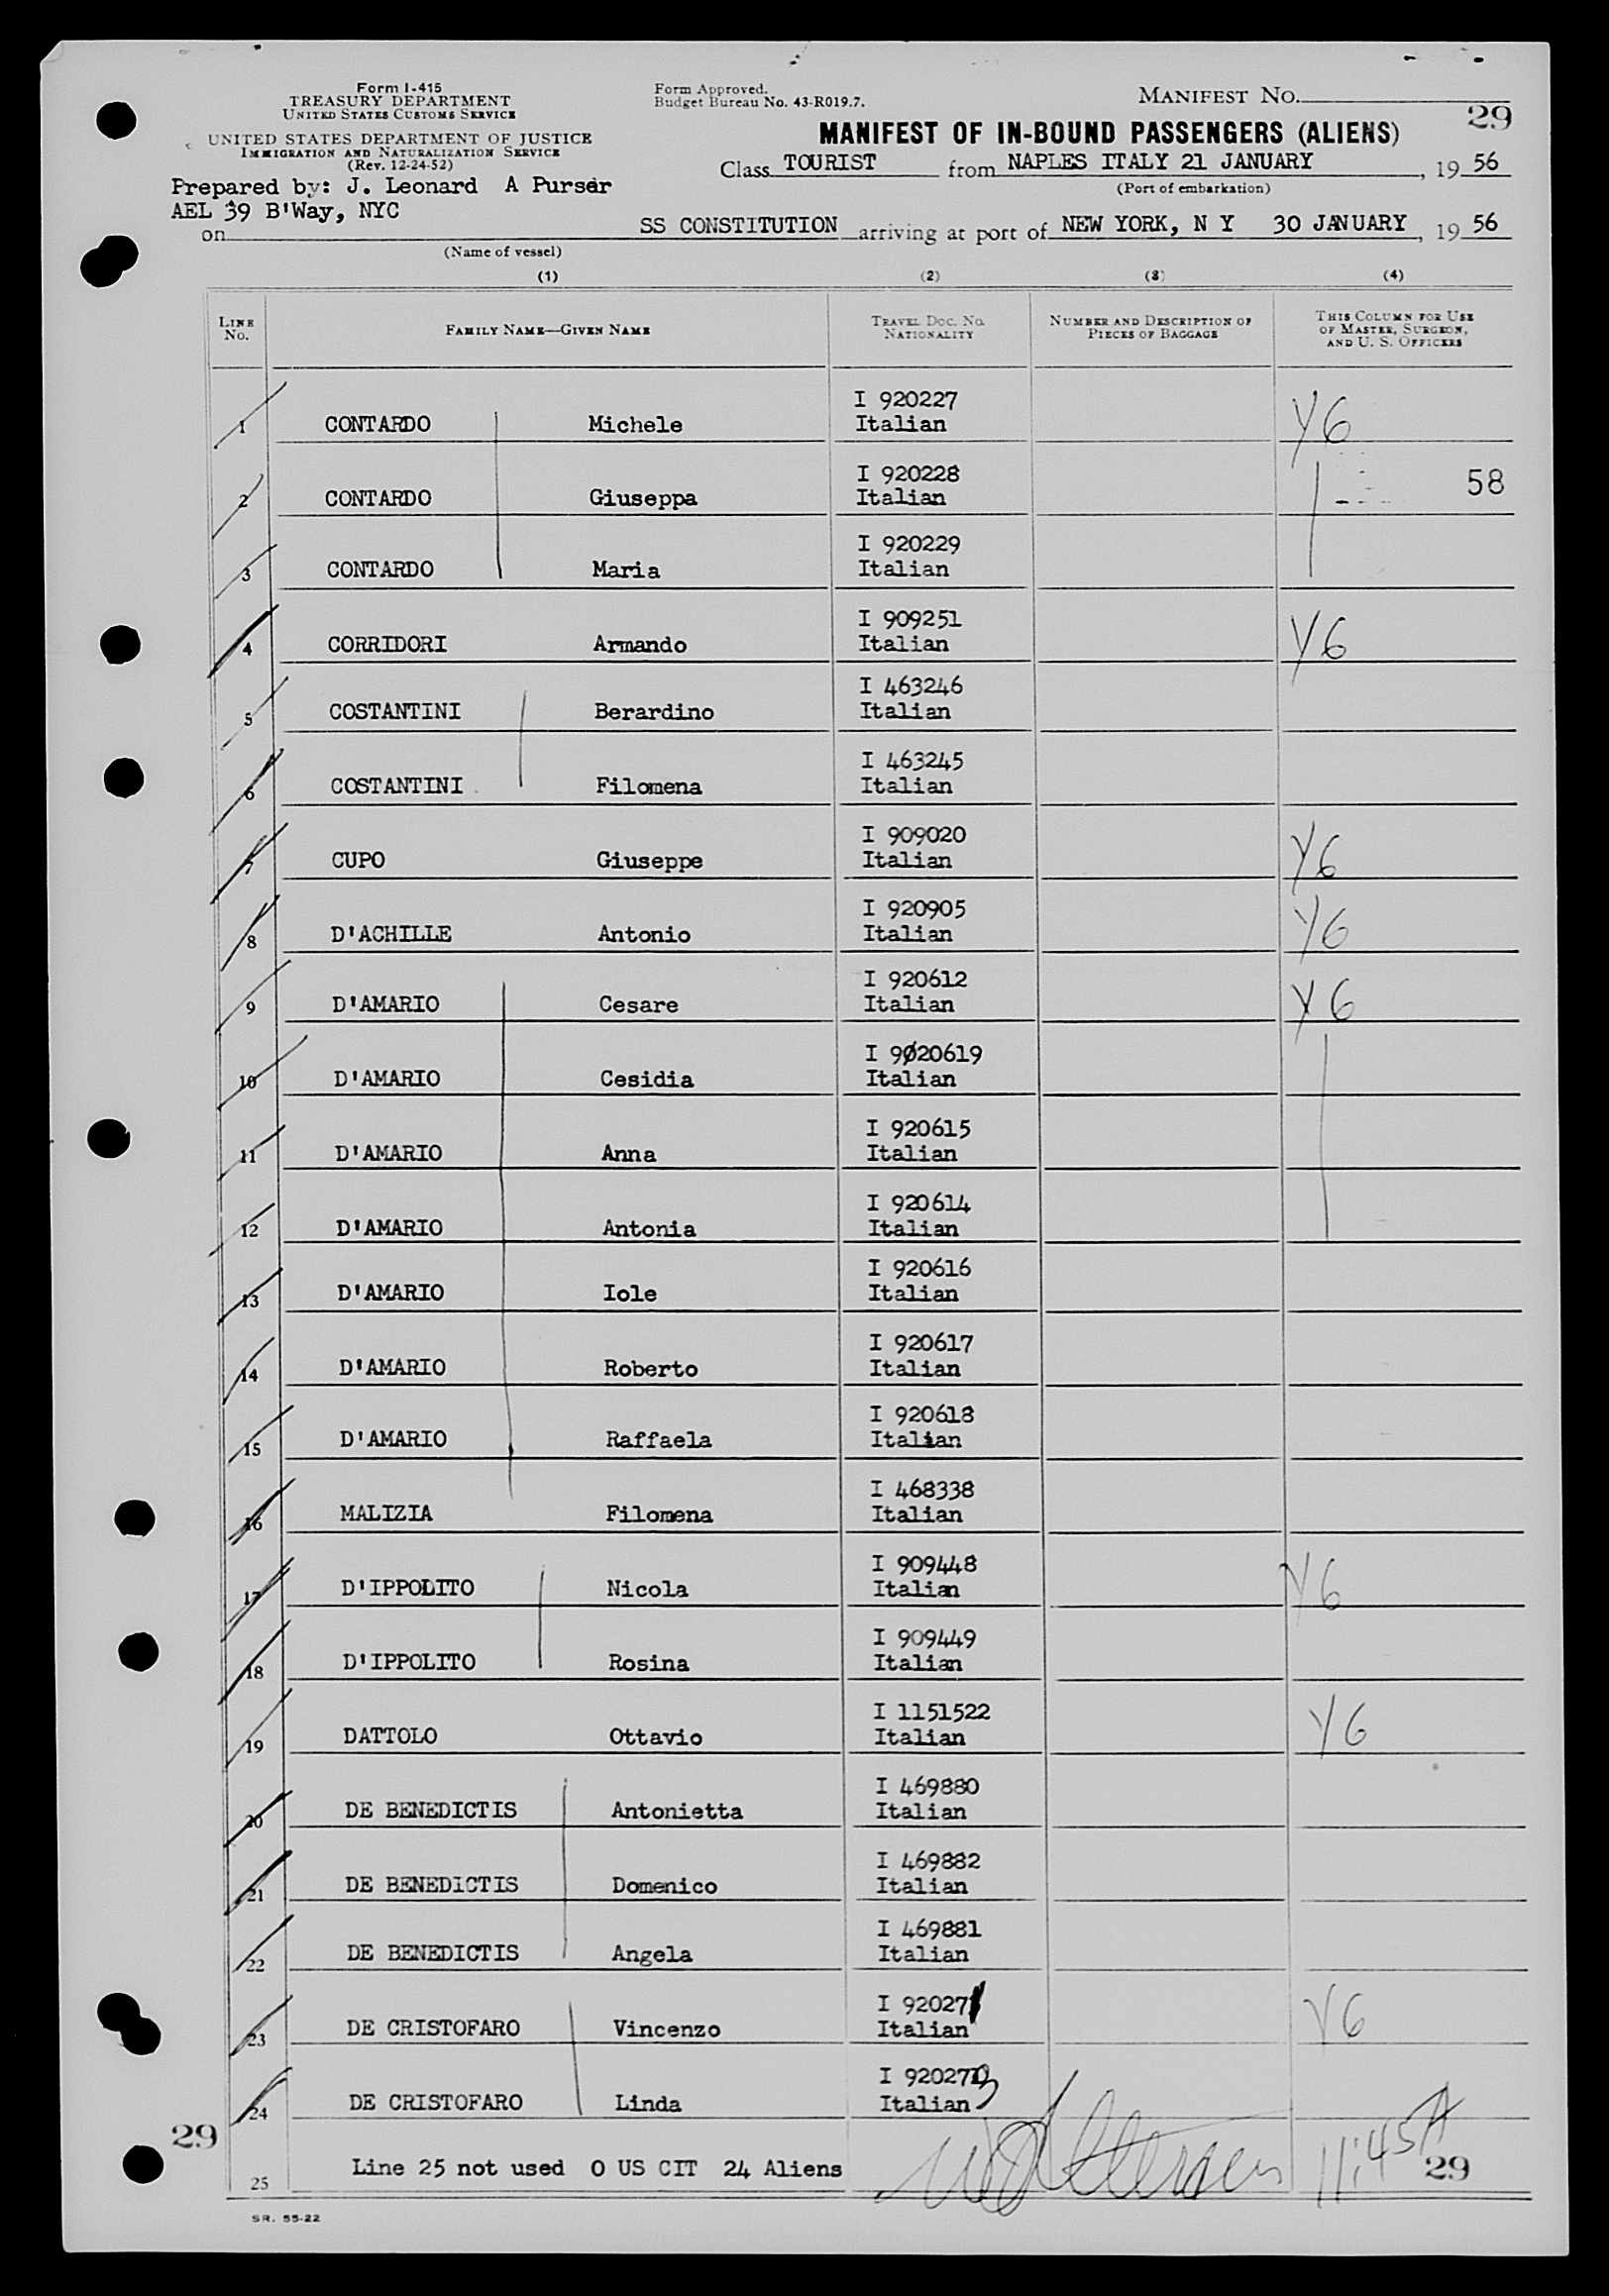 Form I-415
TREASURY DEPARTMENT
UNITED STATES CUSTOMS SERVICE
UNITED STATES DEPARTMENT OF JUSTICE
IMMIGRATION AND NATURALIZATION SERVICE
(Rev. 12-24-52)
Prepared by: J. Leonard A Purser
AEL 39 B'Way, NYC
Form Approved.
Budget Bureau No. 43-R019.7.
MANIFEST NO.
29
MANIFEST OF IN-BOUND PASSENGERS (ALIENS)
Class TOURIST from NAPLES ITALY 21 JANUARY, 19 56
(Port of embarkation)
on SS CONSTITUTION arriving at port of NEW YORK, N Y 30 JANUARY, 19 56
(Name of vessel)
(1) (2) (3) (4)
LINE NO. FAMILY NAME—GIVEN NAME TRAVEL DOC. NO. NATIONALITY NUMBER AND DESCRIPTION OF PIECES OF BAGGAGE THIS COLUMN FOR USE OF MASTER, SURGEON, AND U. S. OFFICERS
I 920227
1 CONTARDO Michele Italian Y6
I 920228 58
2 CONTARDO Giuseppa Italian
I 920229
3 CONTARDO Maria Italian
I 909251
4 CORRIDORI Armando Italian Y6
I 463246
5 COSTANTINI Berardino Italian
I 463245
6 COSTANTINI Filomena Italian
I 909020
7 CUPO Giuseppe Italian Y6
I 920905
8 D'ACHILLE Antonio Italian Y6
I 920612
9 D'AMARIO Cesare Italian Y6
I 9020619
10 D'AMARIO Cesidia Italian
I 920615
11 D'AMARIO Anna Italian
I 920614
12 D'AMARIO Antonia Italian
I 920616
13 D'AMARIO Iole Italian
I 920617
14 D'AMARIO Roberto Italian
I 920618
15 D'AMARIO Raffaela Italian
I 468338
16 MALIZIA Filomena Italian
I 909448
17 D'IPPOLITO Nicola Italian Y6
I 909449
18 D'IPPOLITO Rosina Italian
I 1151522
19 DATTOLO Ottavio Italian Y6
I 469880
20 DE BENEDICTIS Antonietta Italian
I 469882
21 DE BENEDICTIS Domenico Italian
I 469881
22 DE BENEDICTIS Angela Italian
I
23 DE CRISTOFARO Vincenzo Italian Y6
I
24 DE CRISTOFARO Linda Italian
29
25 Line 25 not used 0 US CIT 24 Aliens 11:45A
29
SR. 55-22